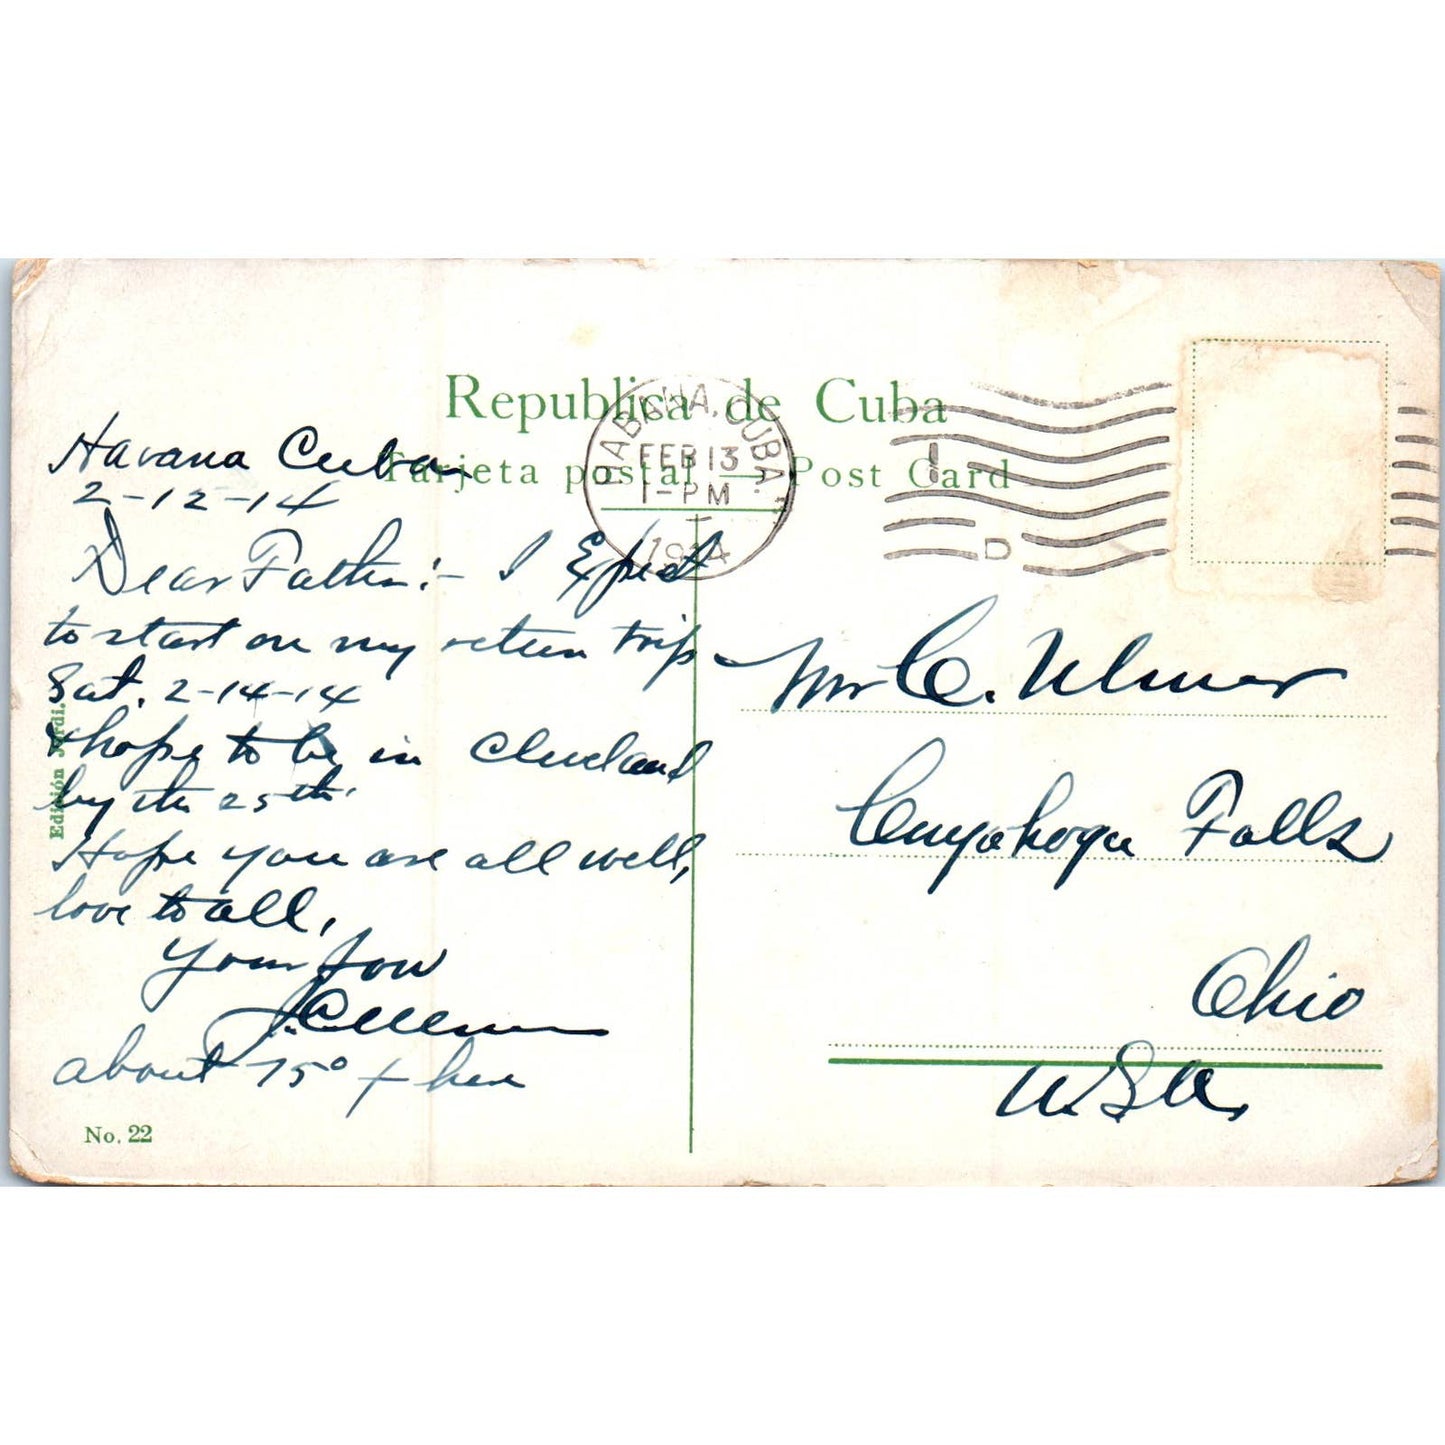 Republica de Cuba
Tarjeta postal — Post Card
HABANA, CUBA.
FEB 13
1-PM
1914
D
Havana Cuba
2-12-14
Dear Father:- I Expect
to start on my return trip
Sat. 2-14-14
& hope to be in Cleveland
by the 25th.
Hope you are all well,
love to all,
Your Son
about 75° + here
Edición Jordi.
No. 22
Mr C. Ulmer
Cuyahoga Falls
Ohio
U.S.A.